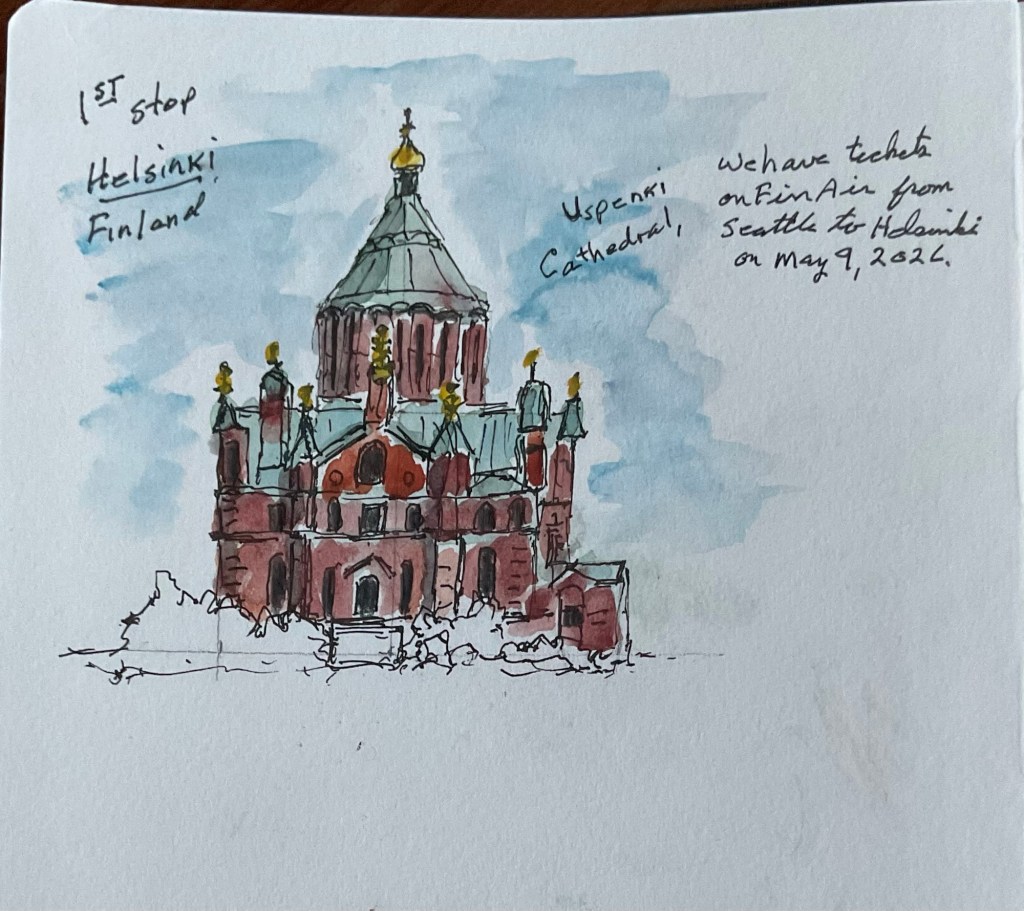 1ST stop
Helsinki
Finland
Uspenki
Cathedral,
We have tickets
on FinAir from
Seattle to Helsinki
on May 9, 2026.